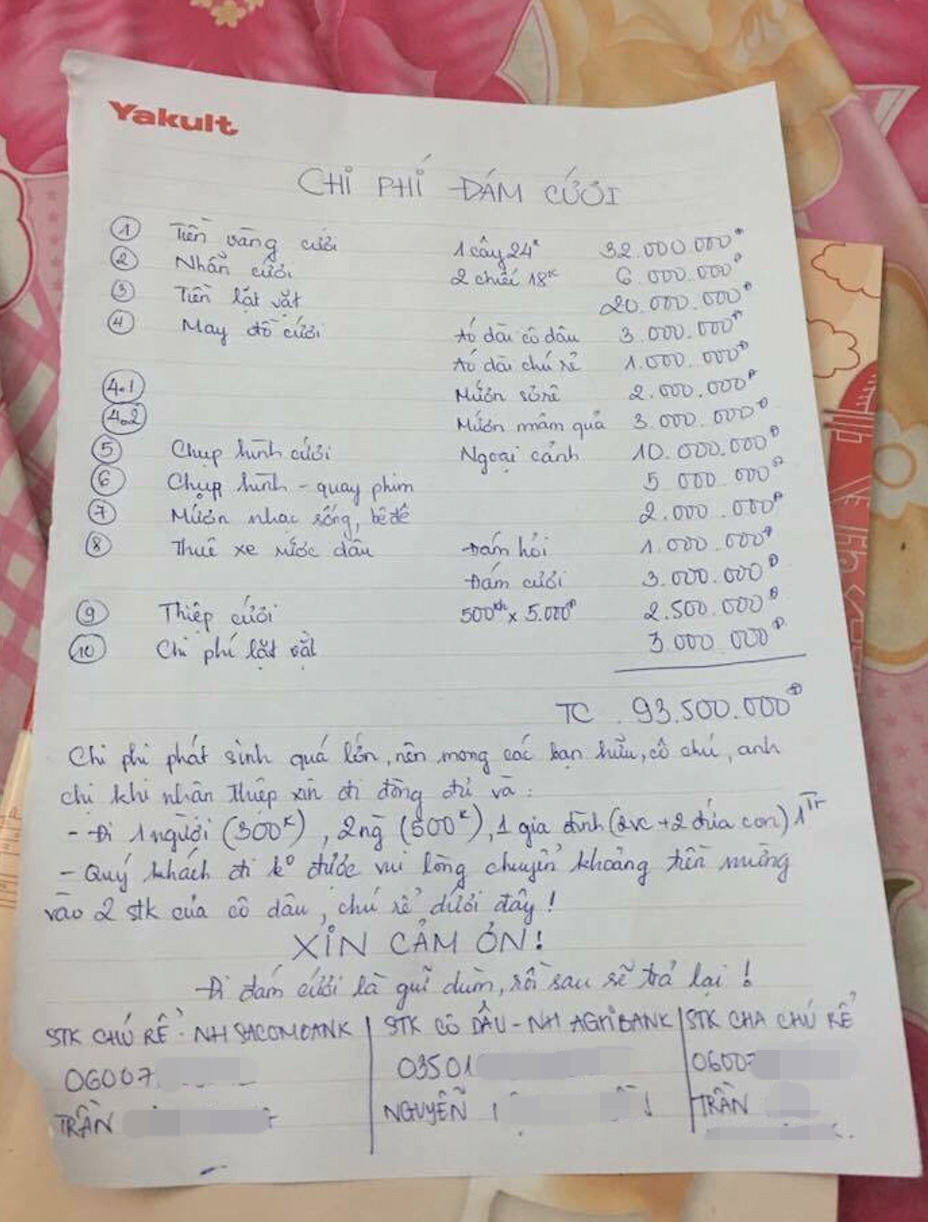 Yakult
CHI PHÍ ĐÁM CƯỚI
1 Tiền vàng cưới 1 cây 24k 32.000.000đ
2 Nhẫn cưới 2 chiếc 18k 6.000.000đ
3 Tiền lặt vặt 20.000.000đ
4 May đồ cưới Áo dài cô dâu 3.000.000đ
Áo dài chú rể 1.000.000đ
4.1 Mướn sôrê 2.000.000đ
4.2 Mướn mâm quả 3.000.000đ
5 Chụp hình cưới Ngoại cảnh 10.000.000đ
6 Chụp hình - quay phim 5.000.000đ
7 Mướn nhạc sống, bê đê 2.000.000đ
8 Thuê xe rước dâu Đám hỏi 1.000.000đ
Đám cưới 3.000.000đ
9 Thiệp cưới 500th x 5.000đ 2.500.000đ
10 Chi phí lặt vặt 3.000.000đ
TC 93.500.000đ
Chi phí phát sinh quá lớn, nên mong các bạn hữu, cô chú, anh
chị khi nhận thiệp xin đi đông đủ và:
- Đi 1 người (300k), 2 ng (500k), 1 gia đình (2vc + 2 đứa con) 1Tr
- Quý khách đi ko được vui lòng chuyển khoảng tiền mừng
vào 2 stk của cô dâu, chú rể dưới đây!
XIN CẢM ƠN!
Đi đám cưới là gửi dùm, rồi sau sẽ trả lại!
STK CHÚ RỂ - NH SACOMBANK | STK CÔ DÂU - NH AGRIBANK | STK CHA CHÚ RỂ
06007 03501 06007
TRẦN NGUYỄN TRẦN